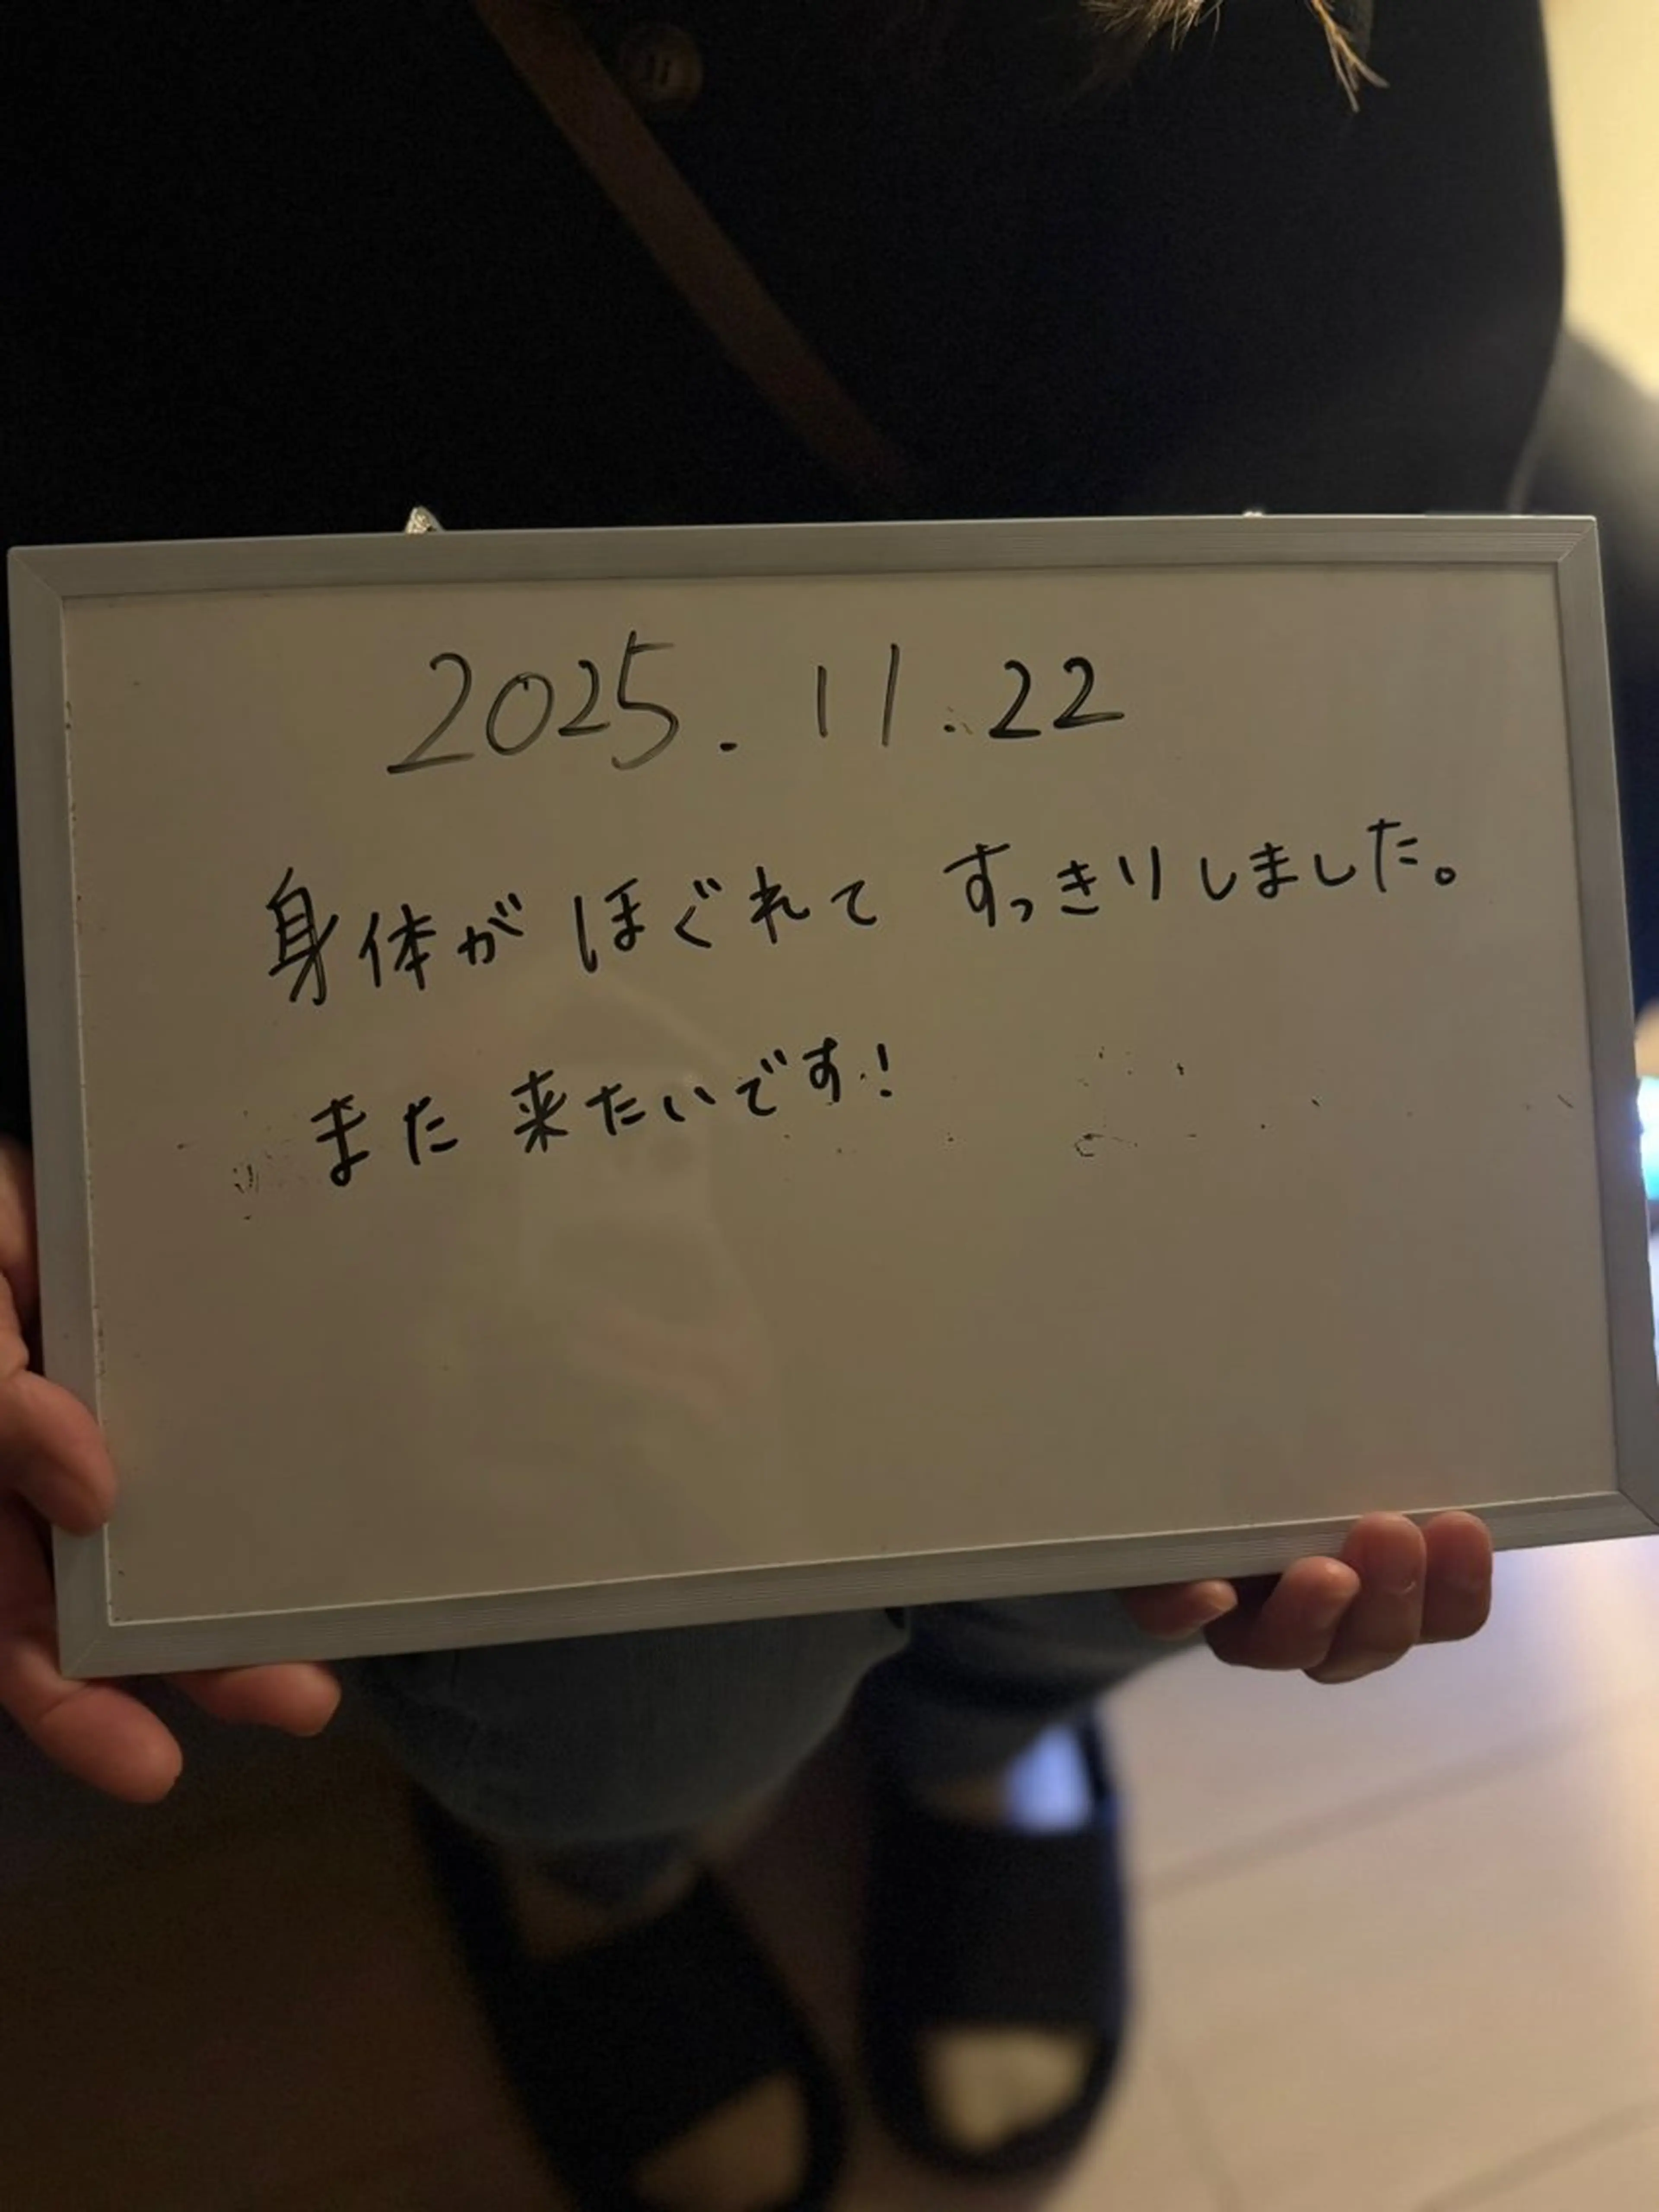 2025.11.22
身体がほぐれてすっきりしました。
また来たいです!